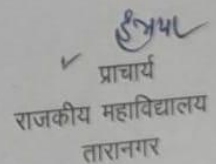 प्राचार्य
राजकीय महाविद्यालय
तारानगर